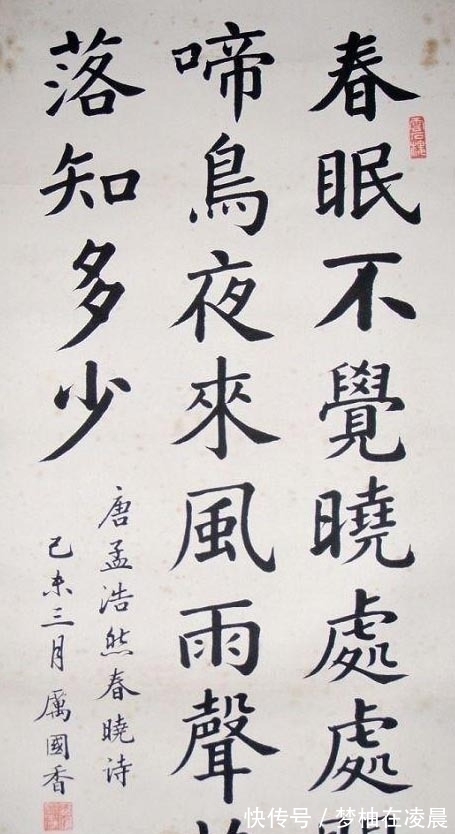 春眠不覺曉處處
啼鳥夜來風雨聲
落知多少
唐孟浩然春曉诗
己未三月厲國香
快传号/梦柚在凌晨